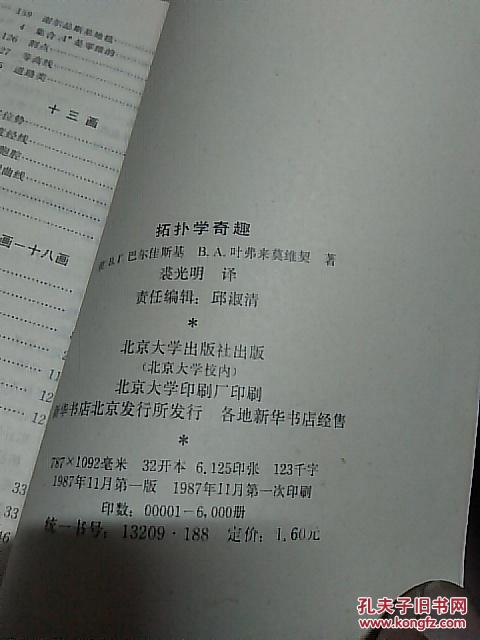 159 谢尔品斯基地毯
4 集合A是零维的
126 割点
27 等高线
5 道路类
十三画
画八十一画
12
12
33
33
46
拓扑学奇趣
B.Г 巴尔佳斯基 B.A.叶弗来莫维契 著
裘光明 译
责任编辑：邱淑清
*
北京大学出版社出版
（北京大学校内）
北京大学印刷厂印刷
新华书店北京发行所发行 各地新华书店经售
*
787×1092毫米 32开本 6.125印张 123千字
1987年11月第一版 1987年11月第一次印刷
印数：00001－6,000册
统一书号：13209·188 定价：1.60元
孔夫子旧书网
www.kongfz.com